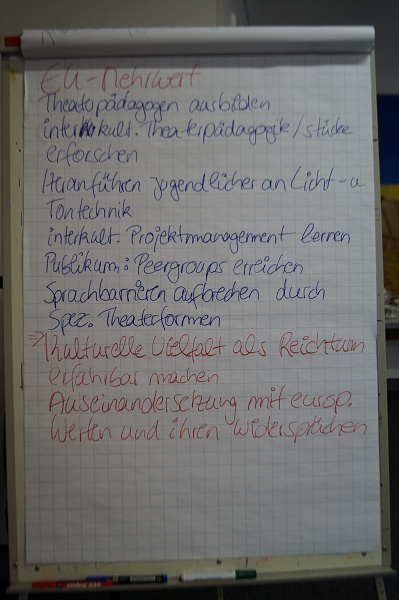 EU-Mehrwert
Theaterpädagogen ausbilden
interkult. Theaterpädagogik/stücke
erforschen
Heranführen jugendlicher an Licht- u
Tontechnik
interkult. Projektmanagement lernen
Publikum: Peergroups erreichen
Sprachbarrieren aufbrechen durch
Spez. Theaterformen
=> kulturelle Vielfalt als Reichtum
erfahrbar machen
Auseinandersetzung mit europ.
Werten und ihren Widersprüchen